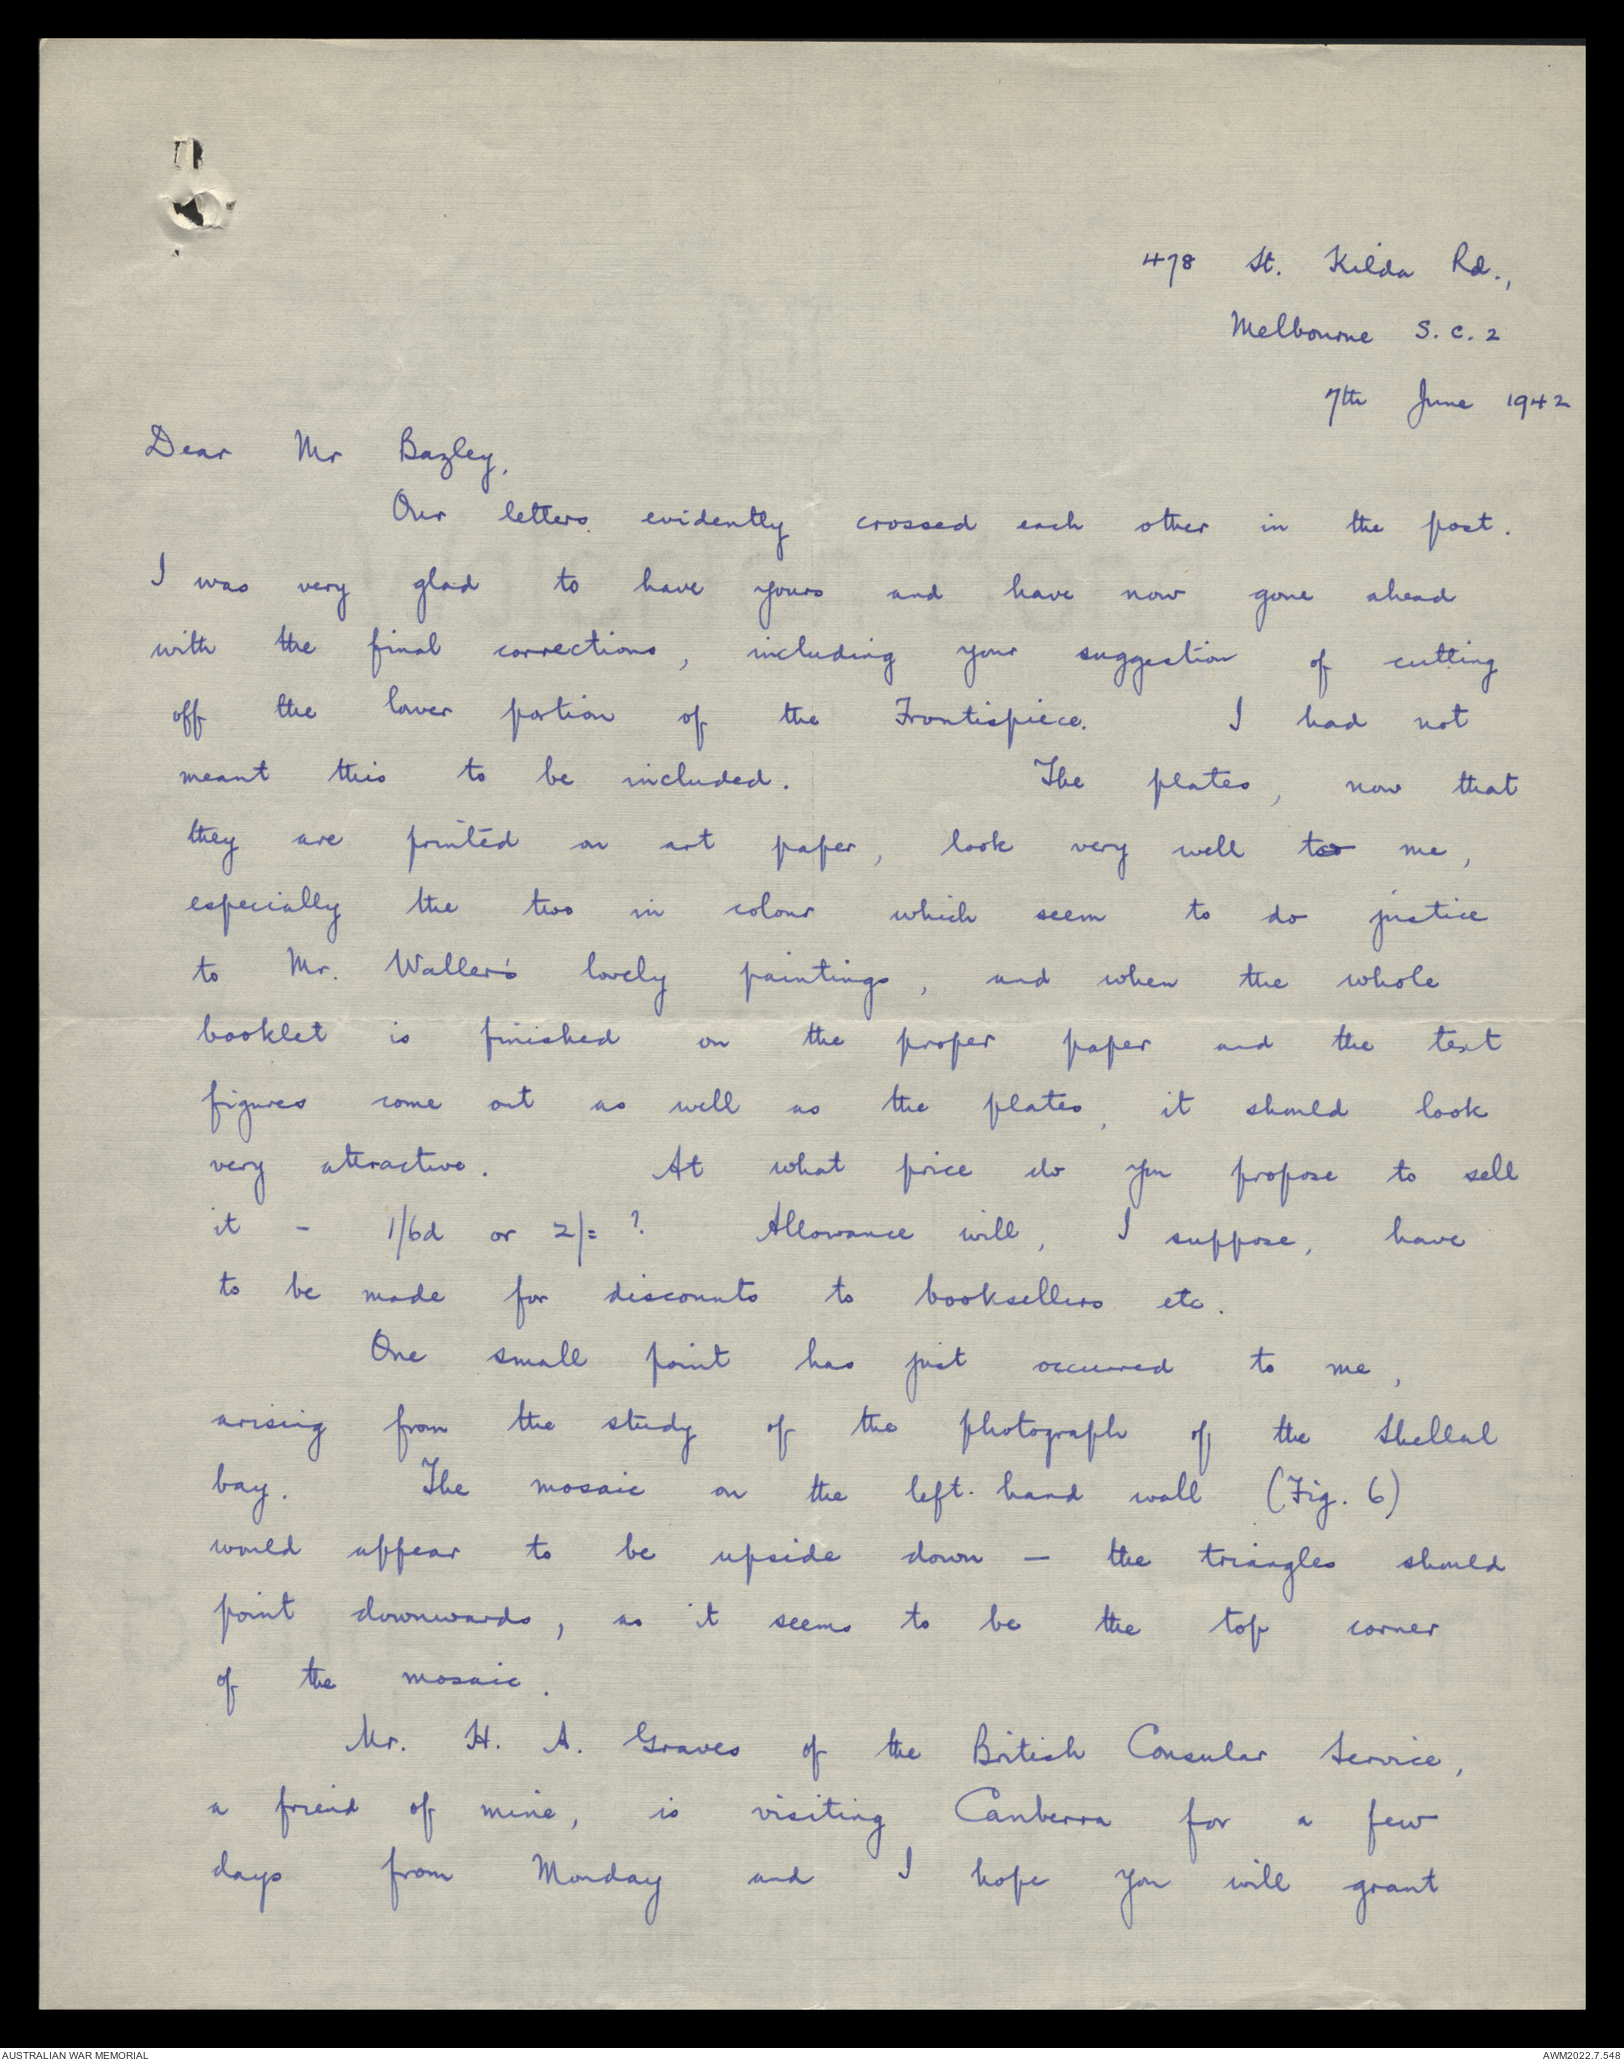 478 St. Kilda Rd.,
Melbourne S.C.2
7th June 1942
Dear Mr Bazley,
Our letters evidently crossed each other in the post.
I was very glad to have yours and have now gone ahead
with the final corrections, including your suggestion of cutting
off the lower portion of the Frontispiece. I had not
meant this to be included. The plates, now that
they are printed on art paper, look very well to me,
especially the two in colour which seem to do justice
to Mr. Waller's lovely paintings, and when the whole
booklet is finished on the proper paper and the text
figures come out as well as the plates, it should look
very attractive. At what price do you propose to sell
it - 1/6d or 2/= ? Allowance will, I suppose, have
to be made for discounts to booksellers etc.
One small point has just occurred to me,
arising from the study of the photograph of the Shellal
bay. The mosaic on the left-hand wall (Fig. 6)
would appear to be upside down - the triangles should
point downwards, as it seems to be the top corner
of the mosaic.
Mr. H. A. Graves of the British Consular Service,
a friend of mine, is visiting Canberra for a few
days from Monday and I hope you will grant
AUSTRALIAN WAR MEMORIAL
AWM2022.7.548